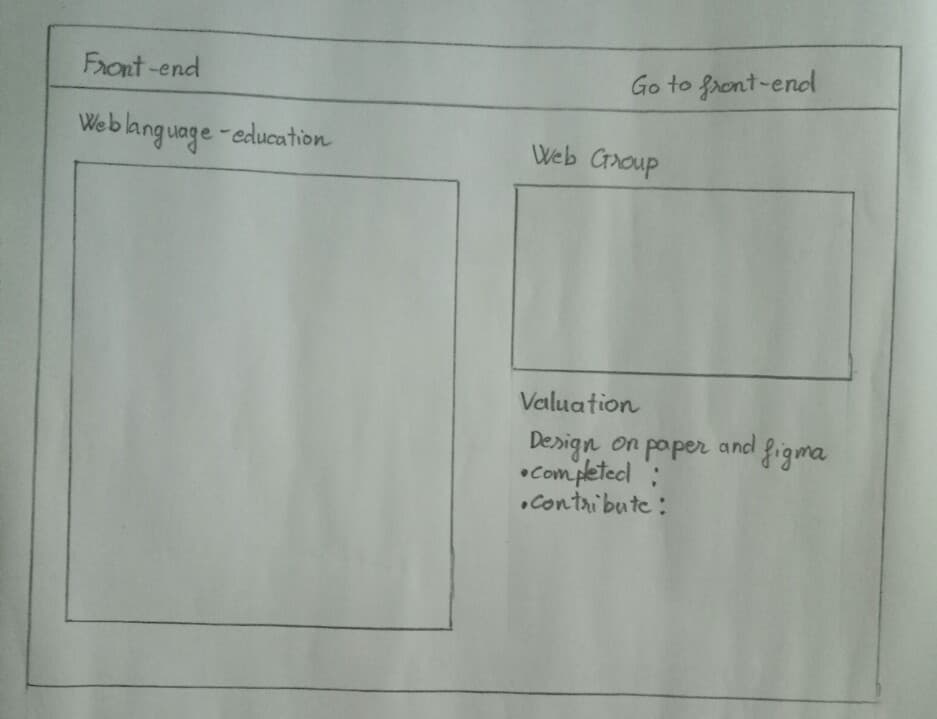 Front-end
Go to front-end
Web language-education
Web Group
Valuation
Design on paper and figma
•completed :
•Contribute :